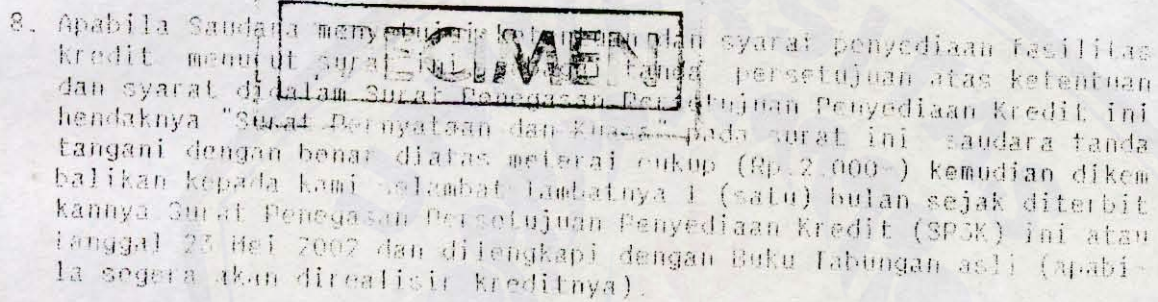 8. Apabila Saudara menyetujui ketentuan dan syarat penyediaan fasilitas
Kredit menurut surat ini sebagai tanda persetujuan atas ketentuan
dan syarat didalam Surat Penegasan Persetujuan Penyediaan Kredit ini
hendaknya "Surat Pernyataan dan Kuasa" pada surat ini saudara tanda
tangani dengan benar diatas meterai cukup (Rp.2.000-) kemudian dikem
balikan kepada kami selambat lambatnya 1 (satu) bulan sejak diterbit
kannya Surat Penegasan Persetujuan Penyediaan Kredit (SP3K) ini atau
tanggal 23 Mei 2002 dan dilengkapi dengan Buku Tabungan asli (apabi-
la segera akan direalisir kreditnya).